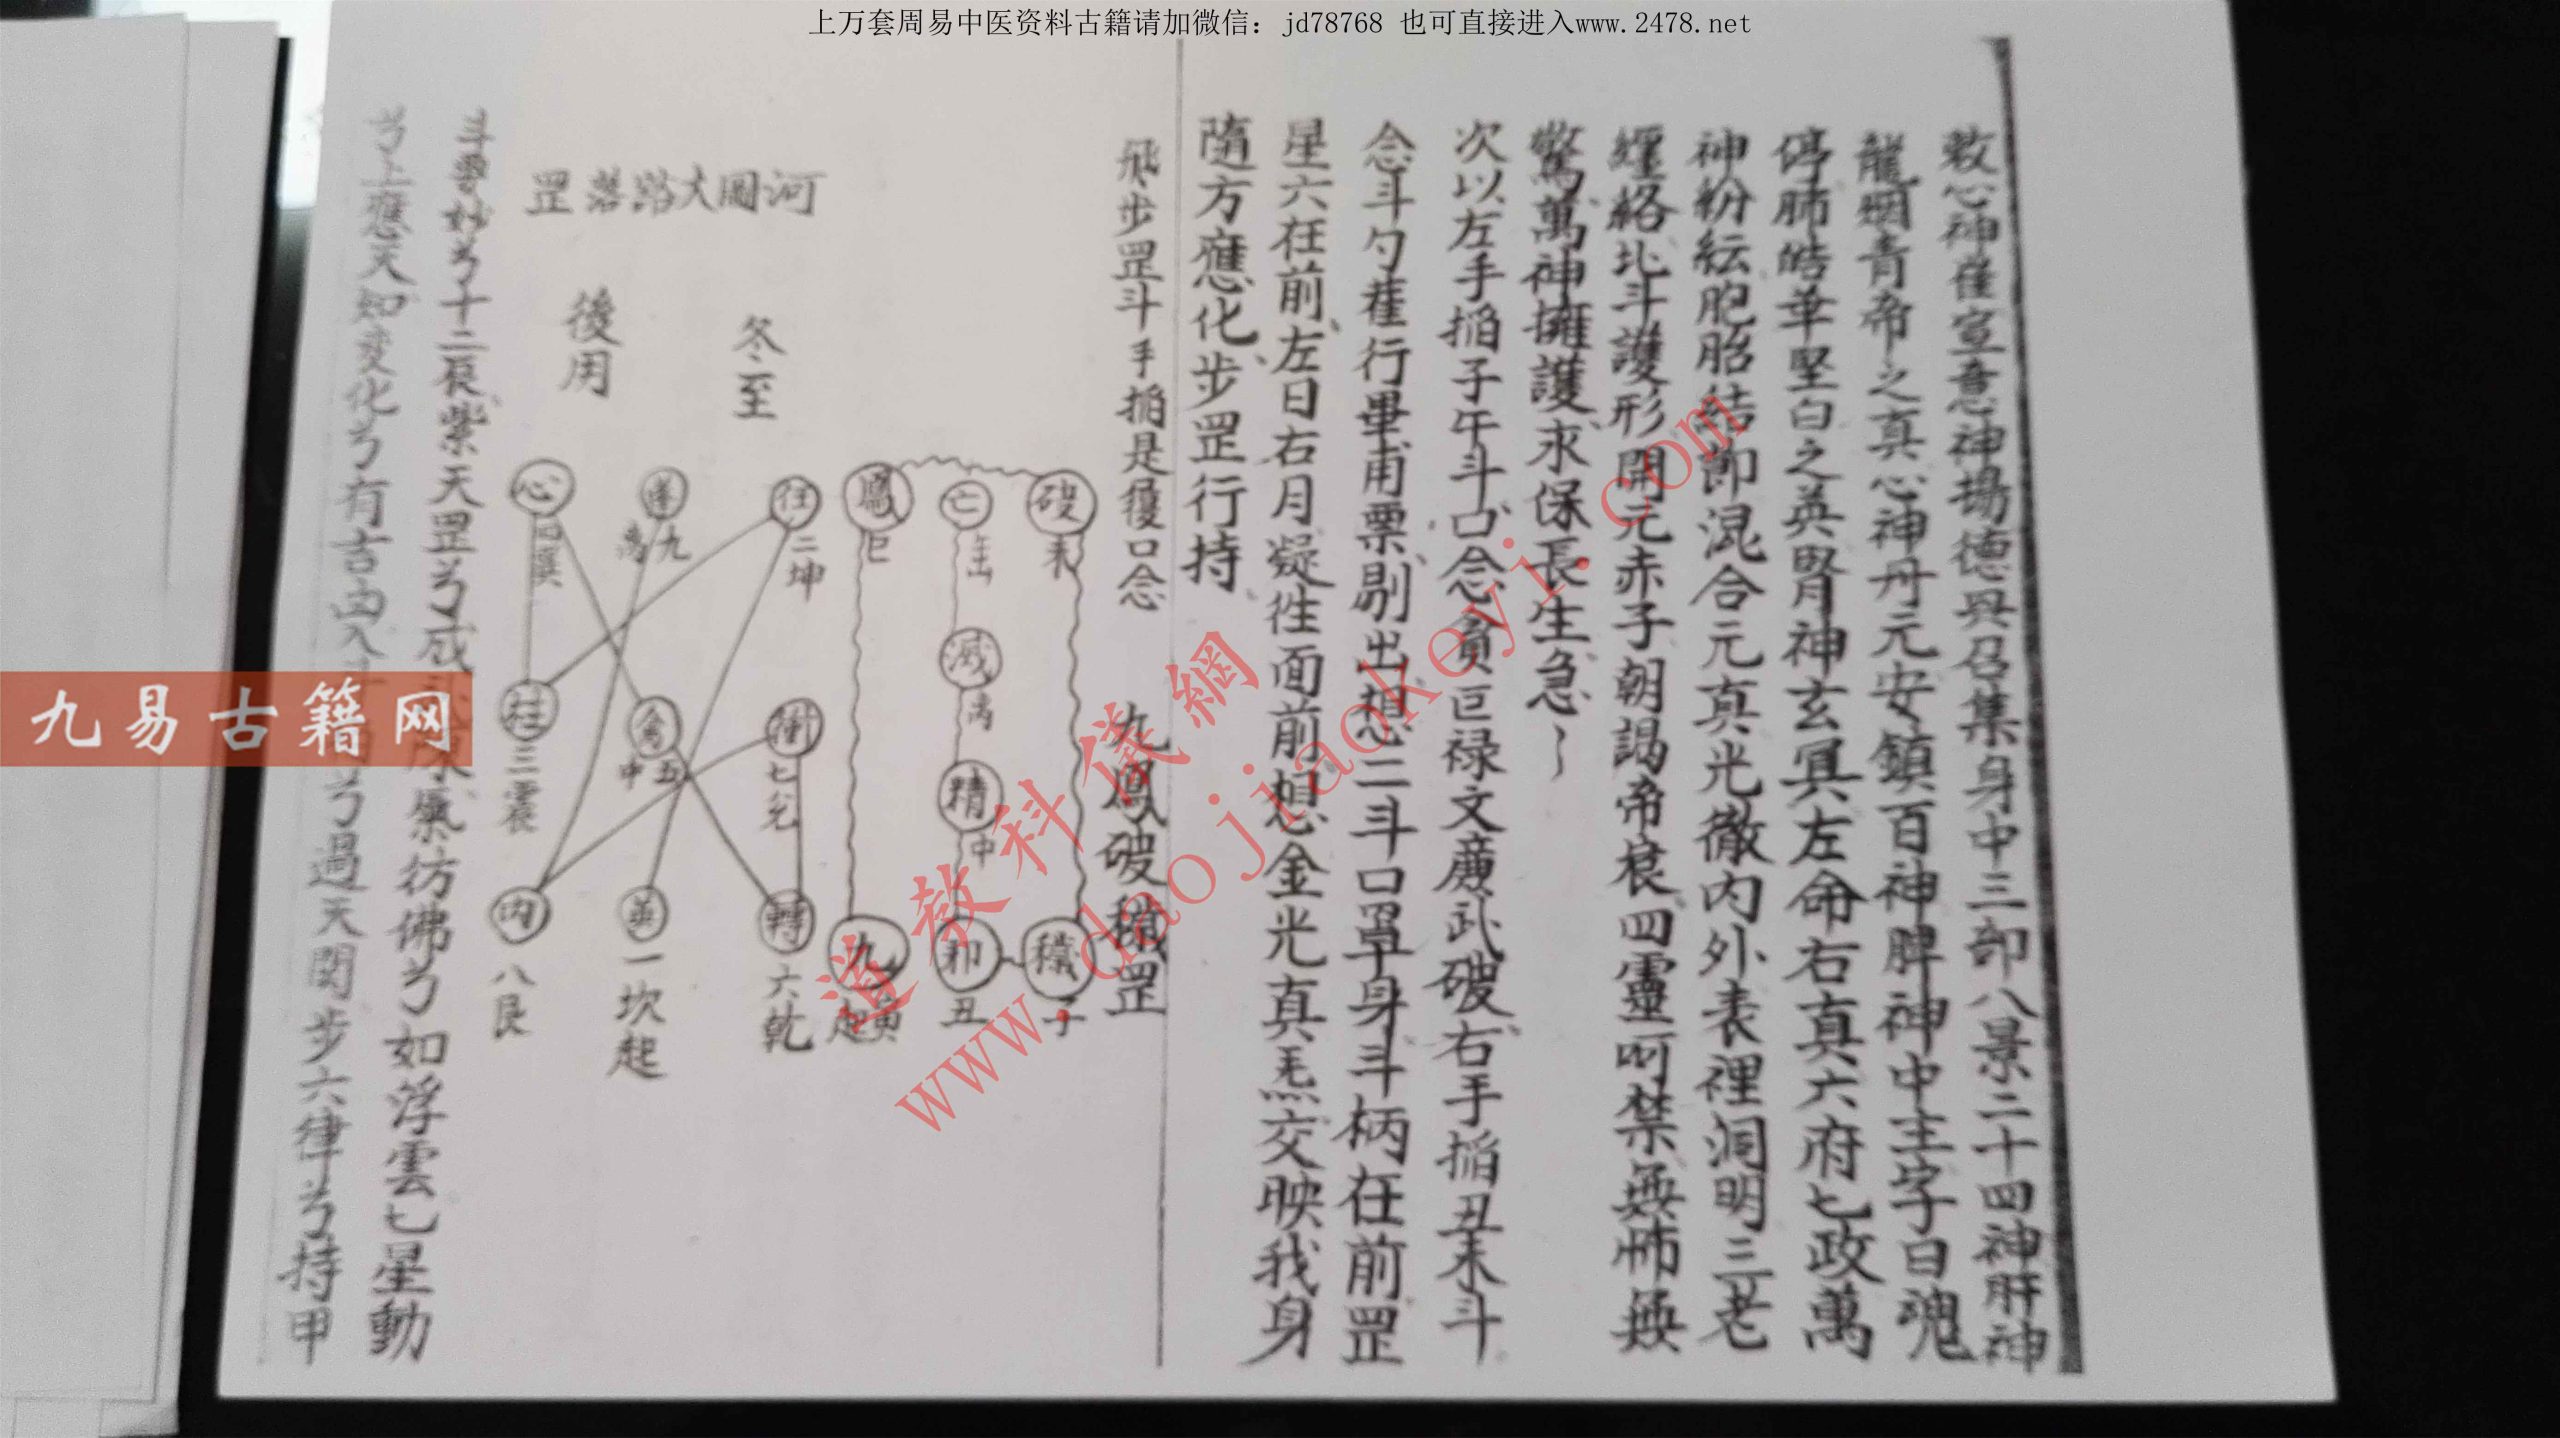 上万套周易中医资料古籍请加微信：jd78768 也可直接进入www.2478.net
敕心神崔宣意神揚德興召集身中三部八景二十四神肝神
龍烟青帝之真心神丹元安鎮百神脾神中主字曰魂
停肺皓華堅白之英腎神玄冥左命右真六府七政萬
神紛紜胞胎結節混合元真光徹内外表裡洞明三老
經絡北斗護形開元赤子朝謁帝衮四靈呵禁無怖無
驚萬神擁護求保長生急
次以左手掐子午斗口念貪巨禄文廉武破右手掐丑未斗
念斗勺雚行畢甫栗剔出想二斗口罩身斗柄在前罡
星六在前左日右月凝往面前想金光真炁交映我身
隨方應化步罡行持
飛步罡斗手掐是後口念 九鳳破穢罡
破 未
亡
滅 离
精 中
穢 子
和 丑
鳳 巳
九 寅起
河圖大路落罡
冬至
後用
任 二坤
蓬 九离
心 四巽
衝 七兌
禽 五中
柱 三震
轉 六乾
英 一坎起
内 八艮
斗要妙兮十二辰紫天罡兮威
氣彷彿兮如浮雲七星動
兮上應天知变化兮有吉凶入斗
兮過天関步六律兮持甲
九易古籍网
道教科儀網
www.daojiaokeyi.com